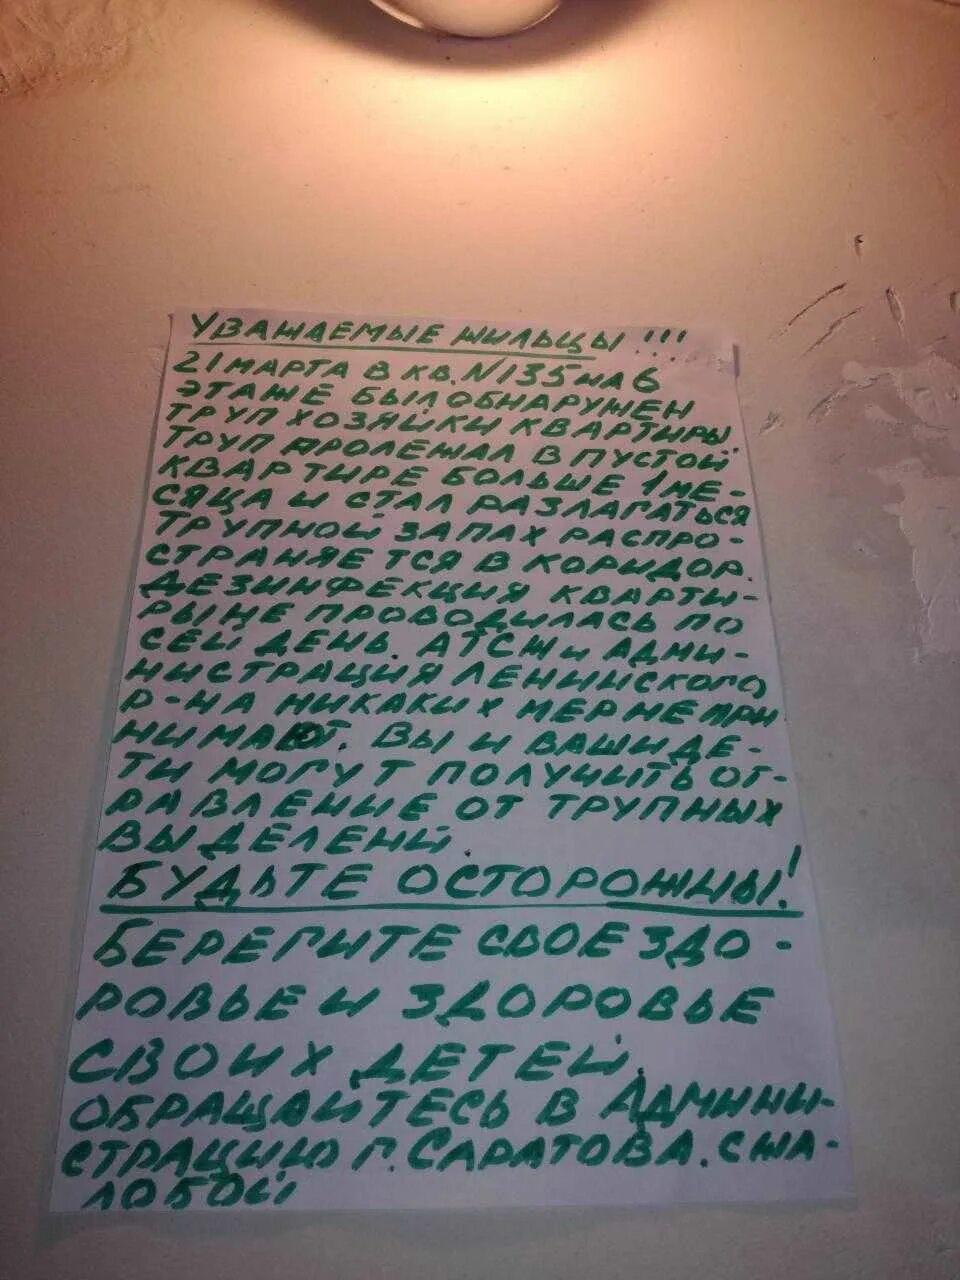 УВАЖАЕМЫЕ ЖИЛЬЦЫ!!!
21 МАРТА В КВ. N135 НА 6
ЭТАЖЕ БЫЛ ОБНАРУЖЕН
ТРУП ХОЗЯЙКИ КВАРТИРЫ.
ТРУП ПРОЛЕЖАЛ В ПУСТОЙ
КВАРТИРЕ БОЛЬШЕ 1 МЕ-
СЯЦА И СТАЛ РАЗЛАГАТЬСЯ
ТРУПНОЙ ЗАПАХ РАСПРО-
СТРАНЯЕТСЯ В КОРИДОР.
ДЕЗИНФЕКЦИЯ КВАРТИ-
РЫ НЕ ПРОВОДИЛАСЬ ПО
СЕЙ ДЕНЬ. АТСЖ И АДМИ-
НИСТРАЦИЯ ЛЕНИНСКОГО
Р-НА НИКАКИХ МЕР НЕ ПРИ
НИМАЮТ. ВЫ И ВАШИ ДЕ-
ТИ МОГУТ ПОЛУЧИТЬ ОТ-
РАВЛЕНИЕ ОТ ТРУПНЫХ
ВЫДЕЛЕНИЙ.
БУДЬТЕ ОСТОРОЖНЫ!
БЕРЕГИТЕ СВОЕ ЗДО-
РОВЬЕ И ЗДОРОВЬЕ
СВОИХ ДЕТЕЙ.
ОБРАЩАЙТЕСЬ В АДМИНИ-
СТРАЦИЮ Г. САРАТОВА. С ЖА-
ЛОБОЙ